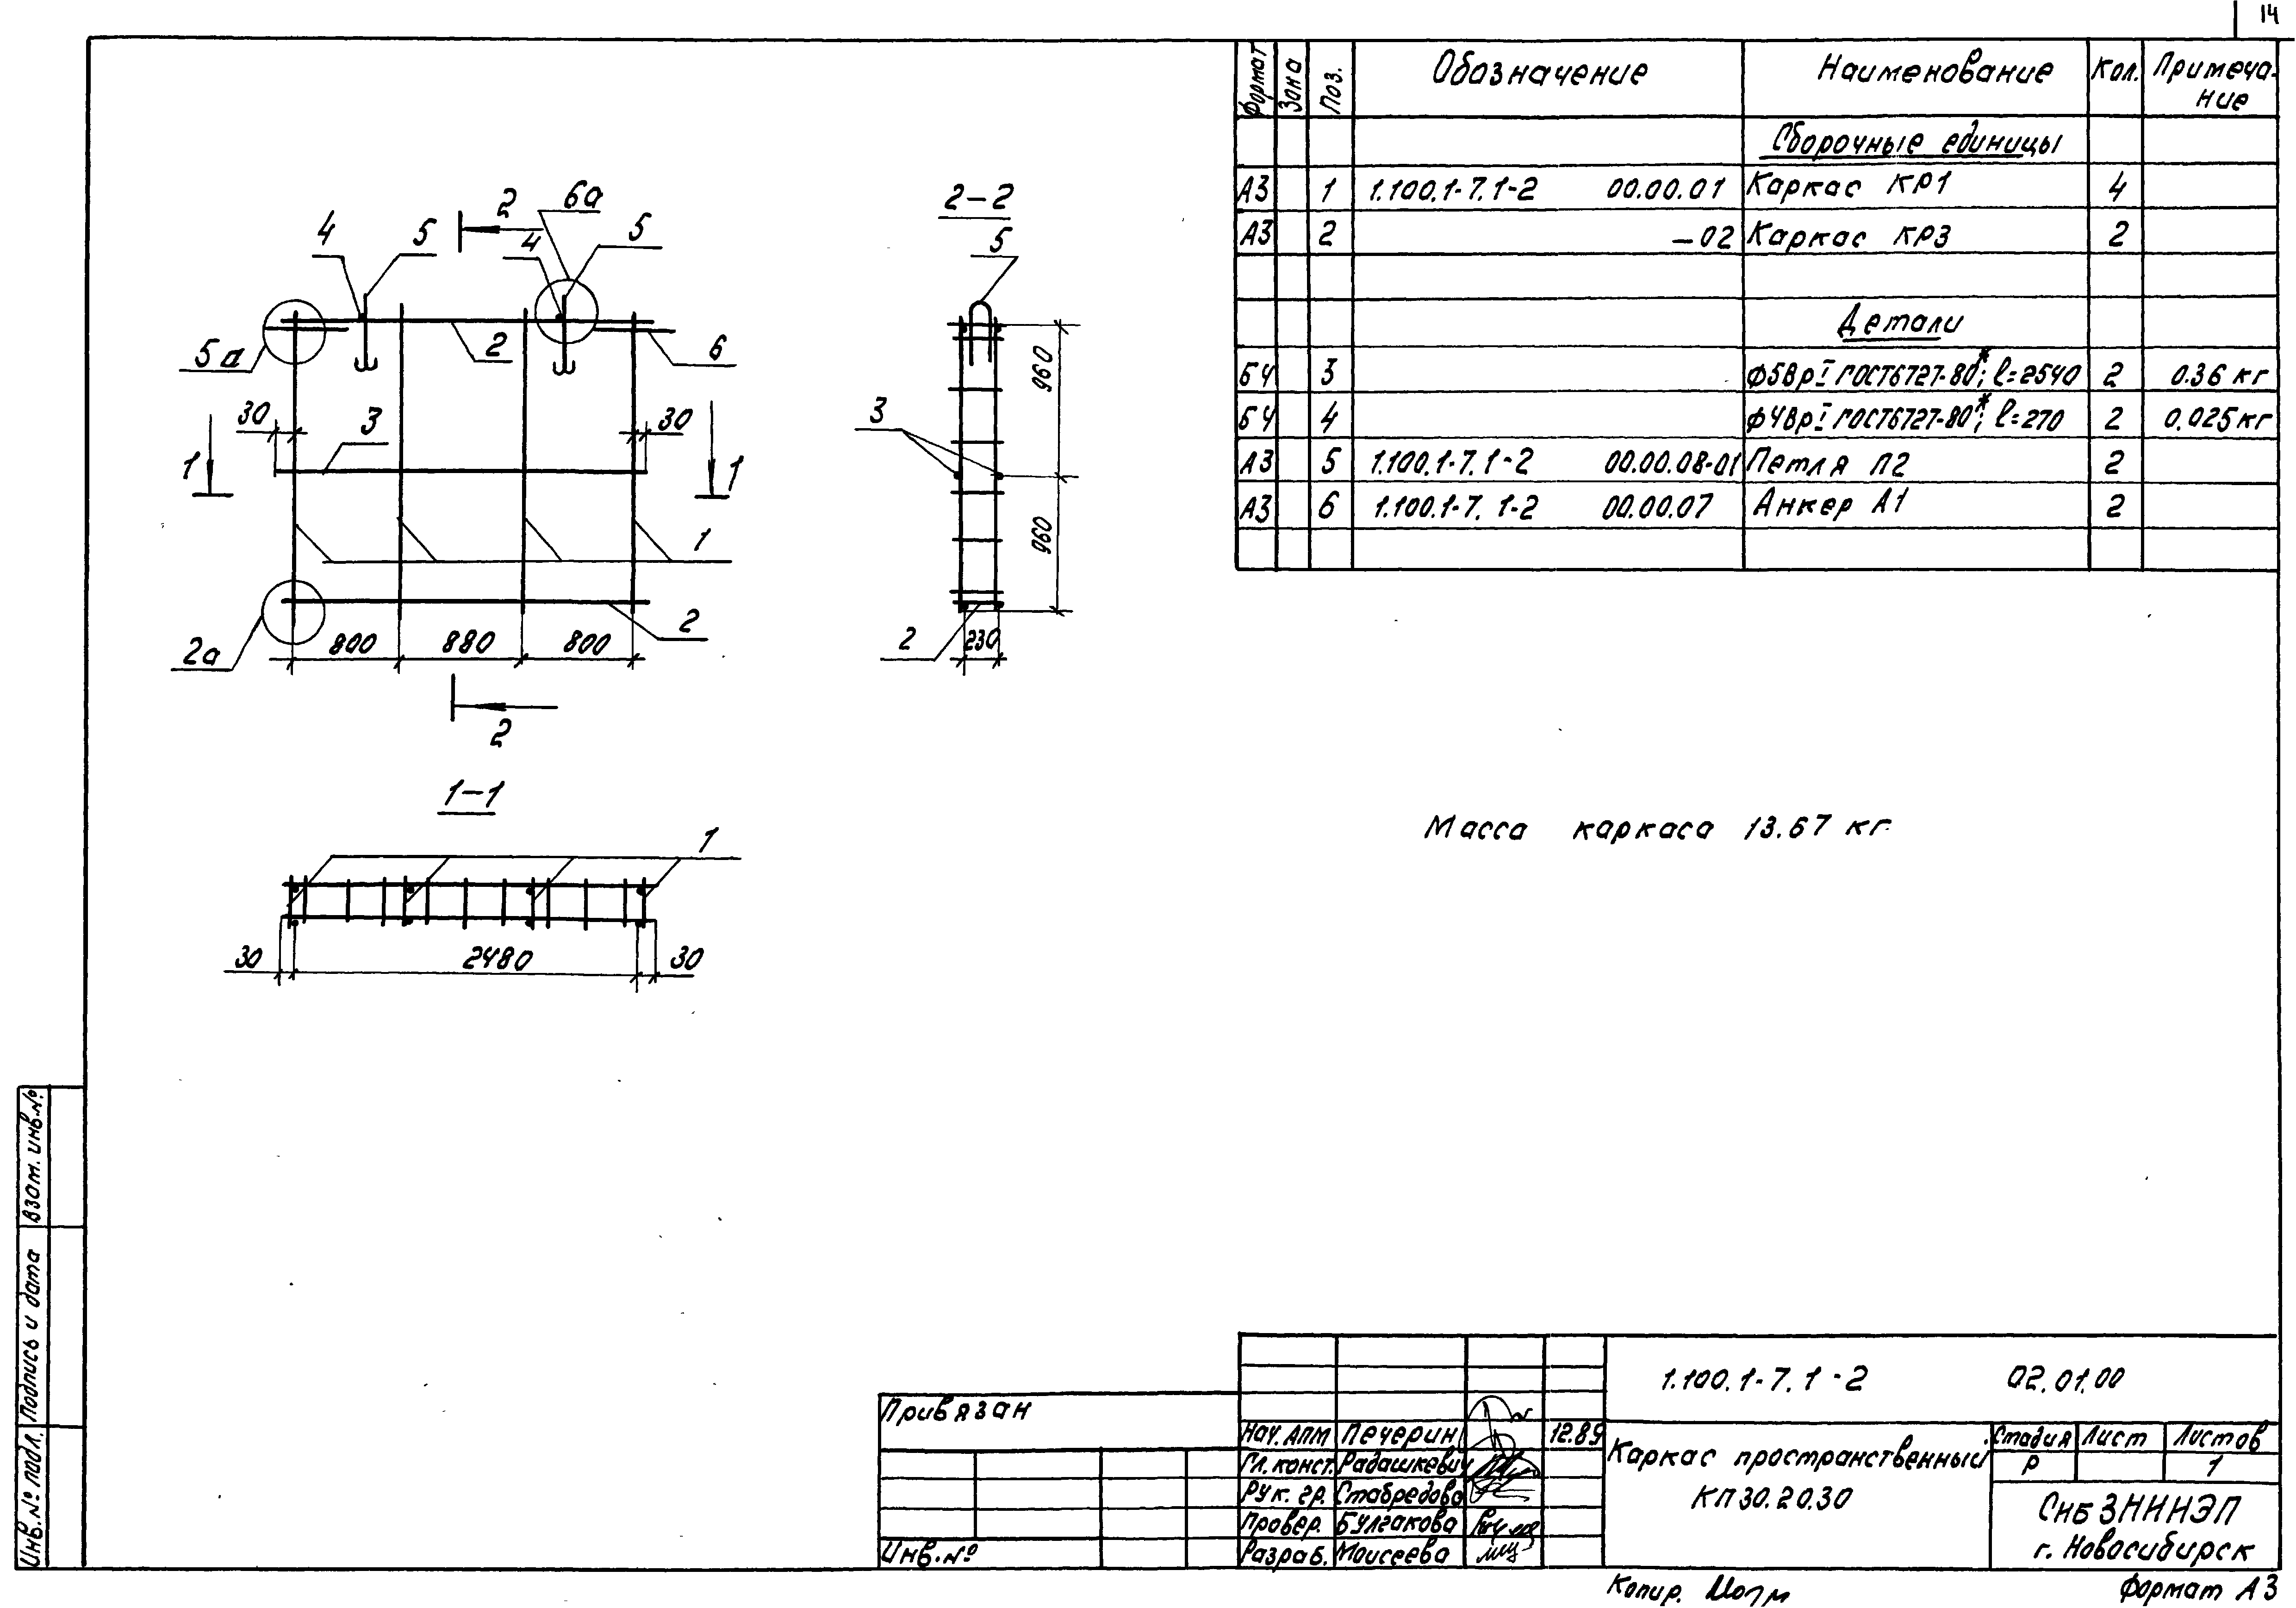 14
Формат Зона Поз. Обозначение Наименование Кол. Примеча-
ние
Сборочные единицы
А3 1 1.100.1-7.1-2 00.00.01 Каркас КР1 4
А3 2 -02 Каркас КР3 2
Детали
БЧ 3 Ф5ВрI ГОСТ6727-80*; ℓ=2540 2 0.36 кг
БЧ 4 Ф4ВрI ГОСТ6727-80*; ℓ=270 2 0.025кг
А3 5 1.100.1-7.1-2 00.00.08-01 Петля П2 2
А3 6 1.100.1-7.1-2 00.00.07 Анкер А1 2
2 6а
4 5 4 5
5а 2 6
30 3 30
1 1
1
2
2а 800 880 800
2
2-2
5
960
3
960
2 230
1-1
1
30 2480 30
Масса каркаса 13.67 кг
Взам. инв.№
Подпись и дата
Инв.№ подл.
Привязан
Инв.№
1.100.1-7.1-2 02.01.00
Нач. АПМ Печерин 12.89
Гл. конст. Радашкевич
Рук. гр. Стабредова
Провер. Булгакова
Разраб. Моисеева
Каркас пространственный
КП30.20.30
Стадия Лист Листов
Р 1
СибЗНИИЭП
г. Новосибирск
Копир.
Формат А3